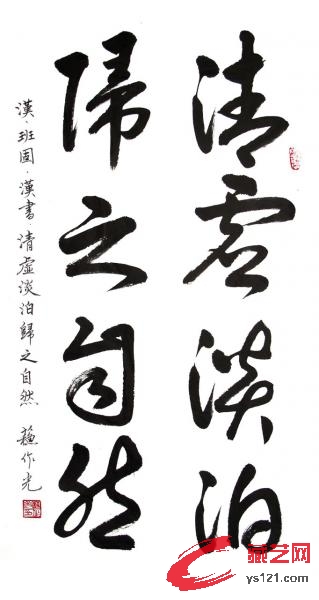 清虚淡泊
歸之自然
漢·班固·漢書清虛淡泊歸之自然 蘇作光
藏艺网
ys121.com